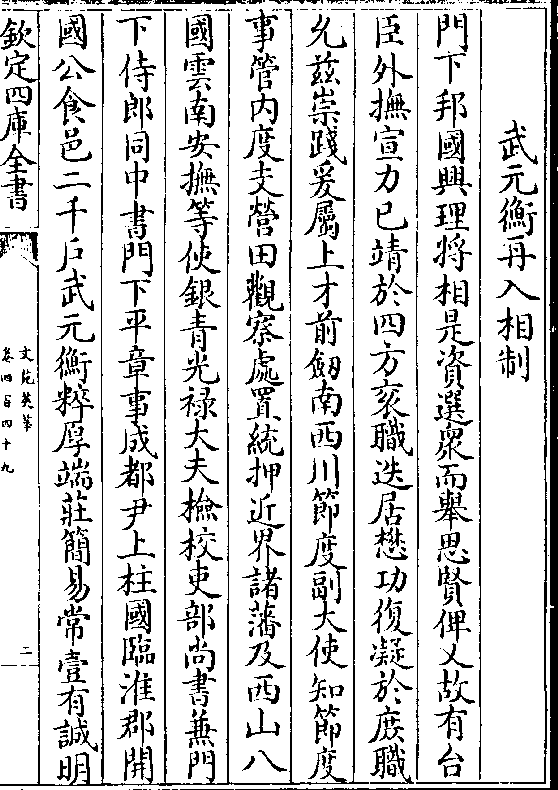 武元衡再入相制
門下邦國興理將相是資選衆而舉思賢俾乂故有台
臣外撫宣力已靖於四方衮職迭居懋功復凝於庶職
允兹崇踐爰屬上才前劒南西川節度副大使知節度
事管内度支營田觀察處置統押近界諸藩及西山八
國雲南安撫等使銀青光禄大夫檢校吏部尚書兼門
下侍郎同中書門下平章事成都尹上柱國臨淮郡開
國公食邑二千戶武元衡粹厚端莊簡易常壹有誠明
欽定四庫全書
文苑英華
卷四百四十九
二